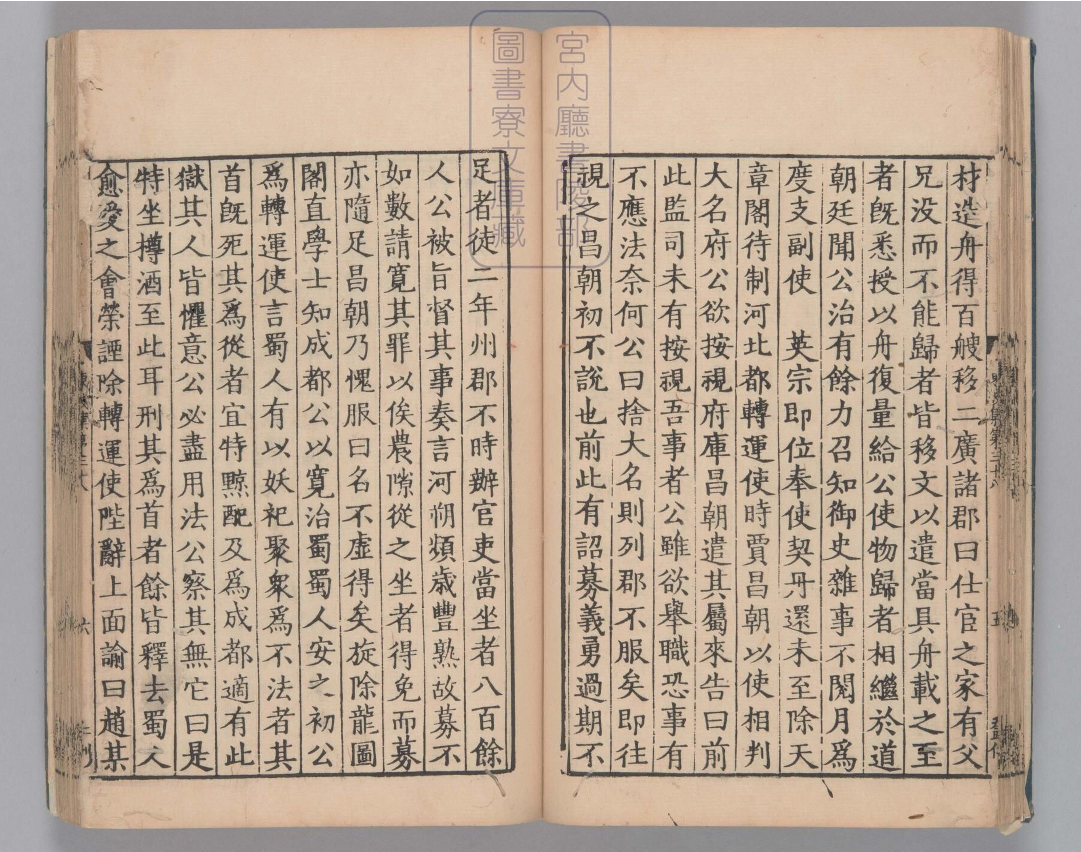 宮内廳書陵部
圖書寮文庫藏
材造舟得百艘移二廣諸郡曰仕宦之家有父
兄没而不能歸者皆移文以遣當具舟載之至
者旣悉授以舟復量給公使物歸者相繼於道
朝廷聞公治有餘力召知御史雜事不閱月爲
度支副使　英宗即位奉使契丹還未至除天
章閣待制河北都轉運使時賈昌朝以使相判
大名府公欲按視府庫昌朝遣其屬來告曰前
此監司未有按視吾事者公雖欲舉職恐事有
不應法奈何公曰捨大名則列郡不服矣即往
視之昌朝初不說也前此有詔募義勇過期不
足者徒二年州郡不時辦官吏當坐者八百餘
人公被旨督其事奏言河朔頻歲豐熟故募不
如數請寬其罪以俟農隙從之坐者得免而募
亦隨足昌朝乃愧服曰名不虛得矣旋除龍圖
閣直學士知成都公以寬治蜀蜀人安之初公
爲轉運使言蜀人有以妖祀聚衆爲不法者其
首旣死其爲從者宜特黥配及爲成都適有此
獄其人皆懼意公必盡用法公察其無它曰是
特坐樽酒至此耳刑其爲首者餘皆釋去蜀人
愈愛之會榮諲除轉運使陛辭上面諭曰趙某
五
六